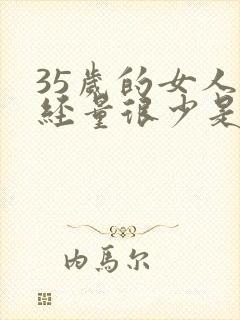 35歲的女人
經量很少是
内馬尔